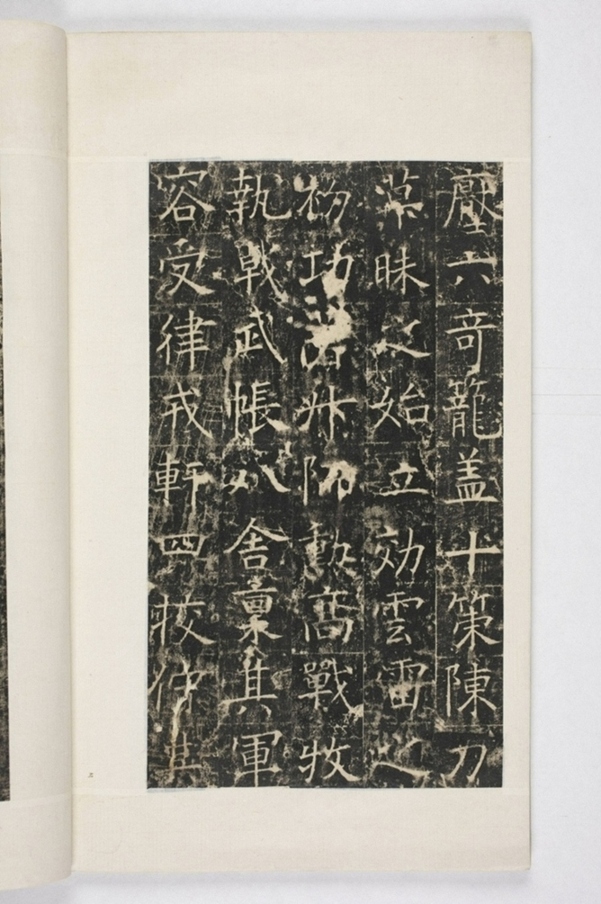 壓六奇籠盖十策陳力
草昧之始立効雲雷之
初功升陑勳高戰牧
執戟武帳八舍稟其軍
容受律戎軒四校仰